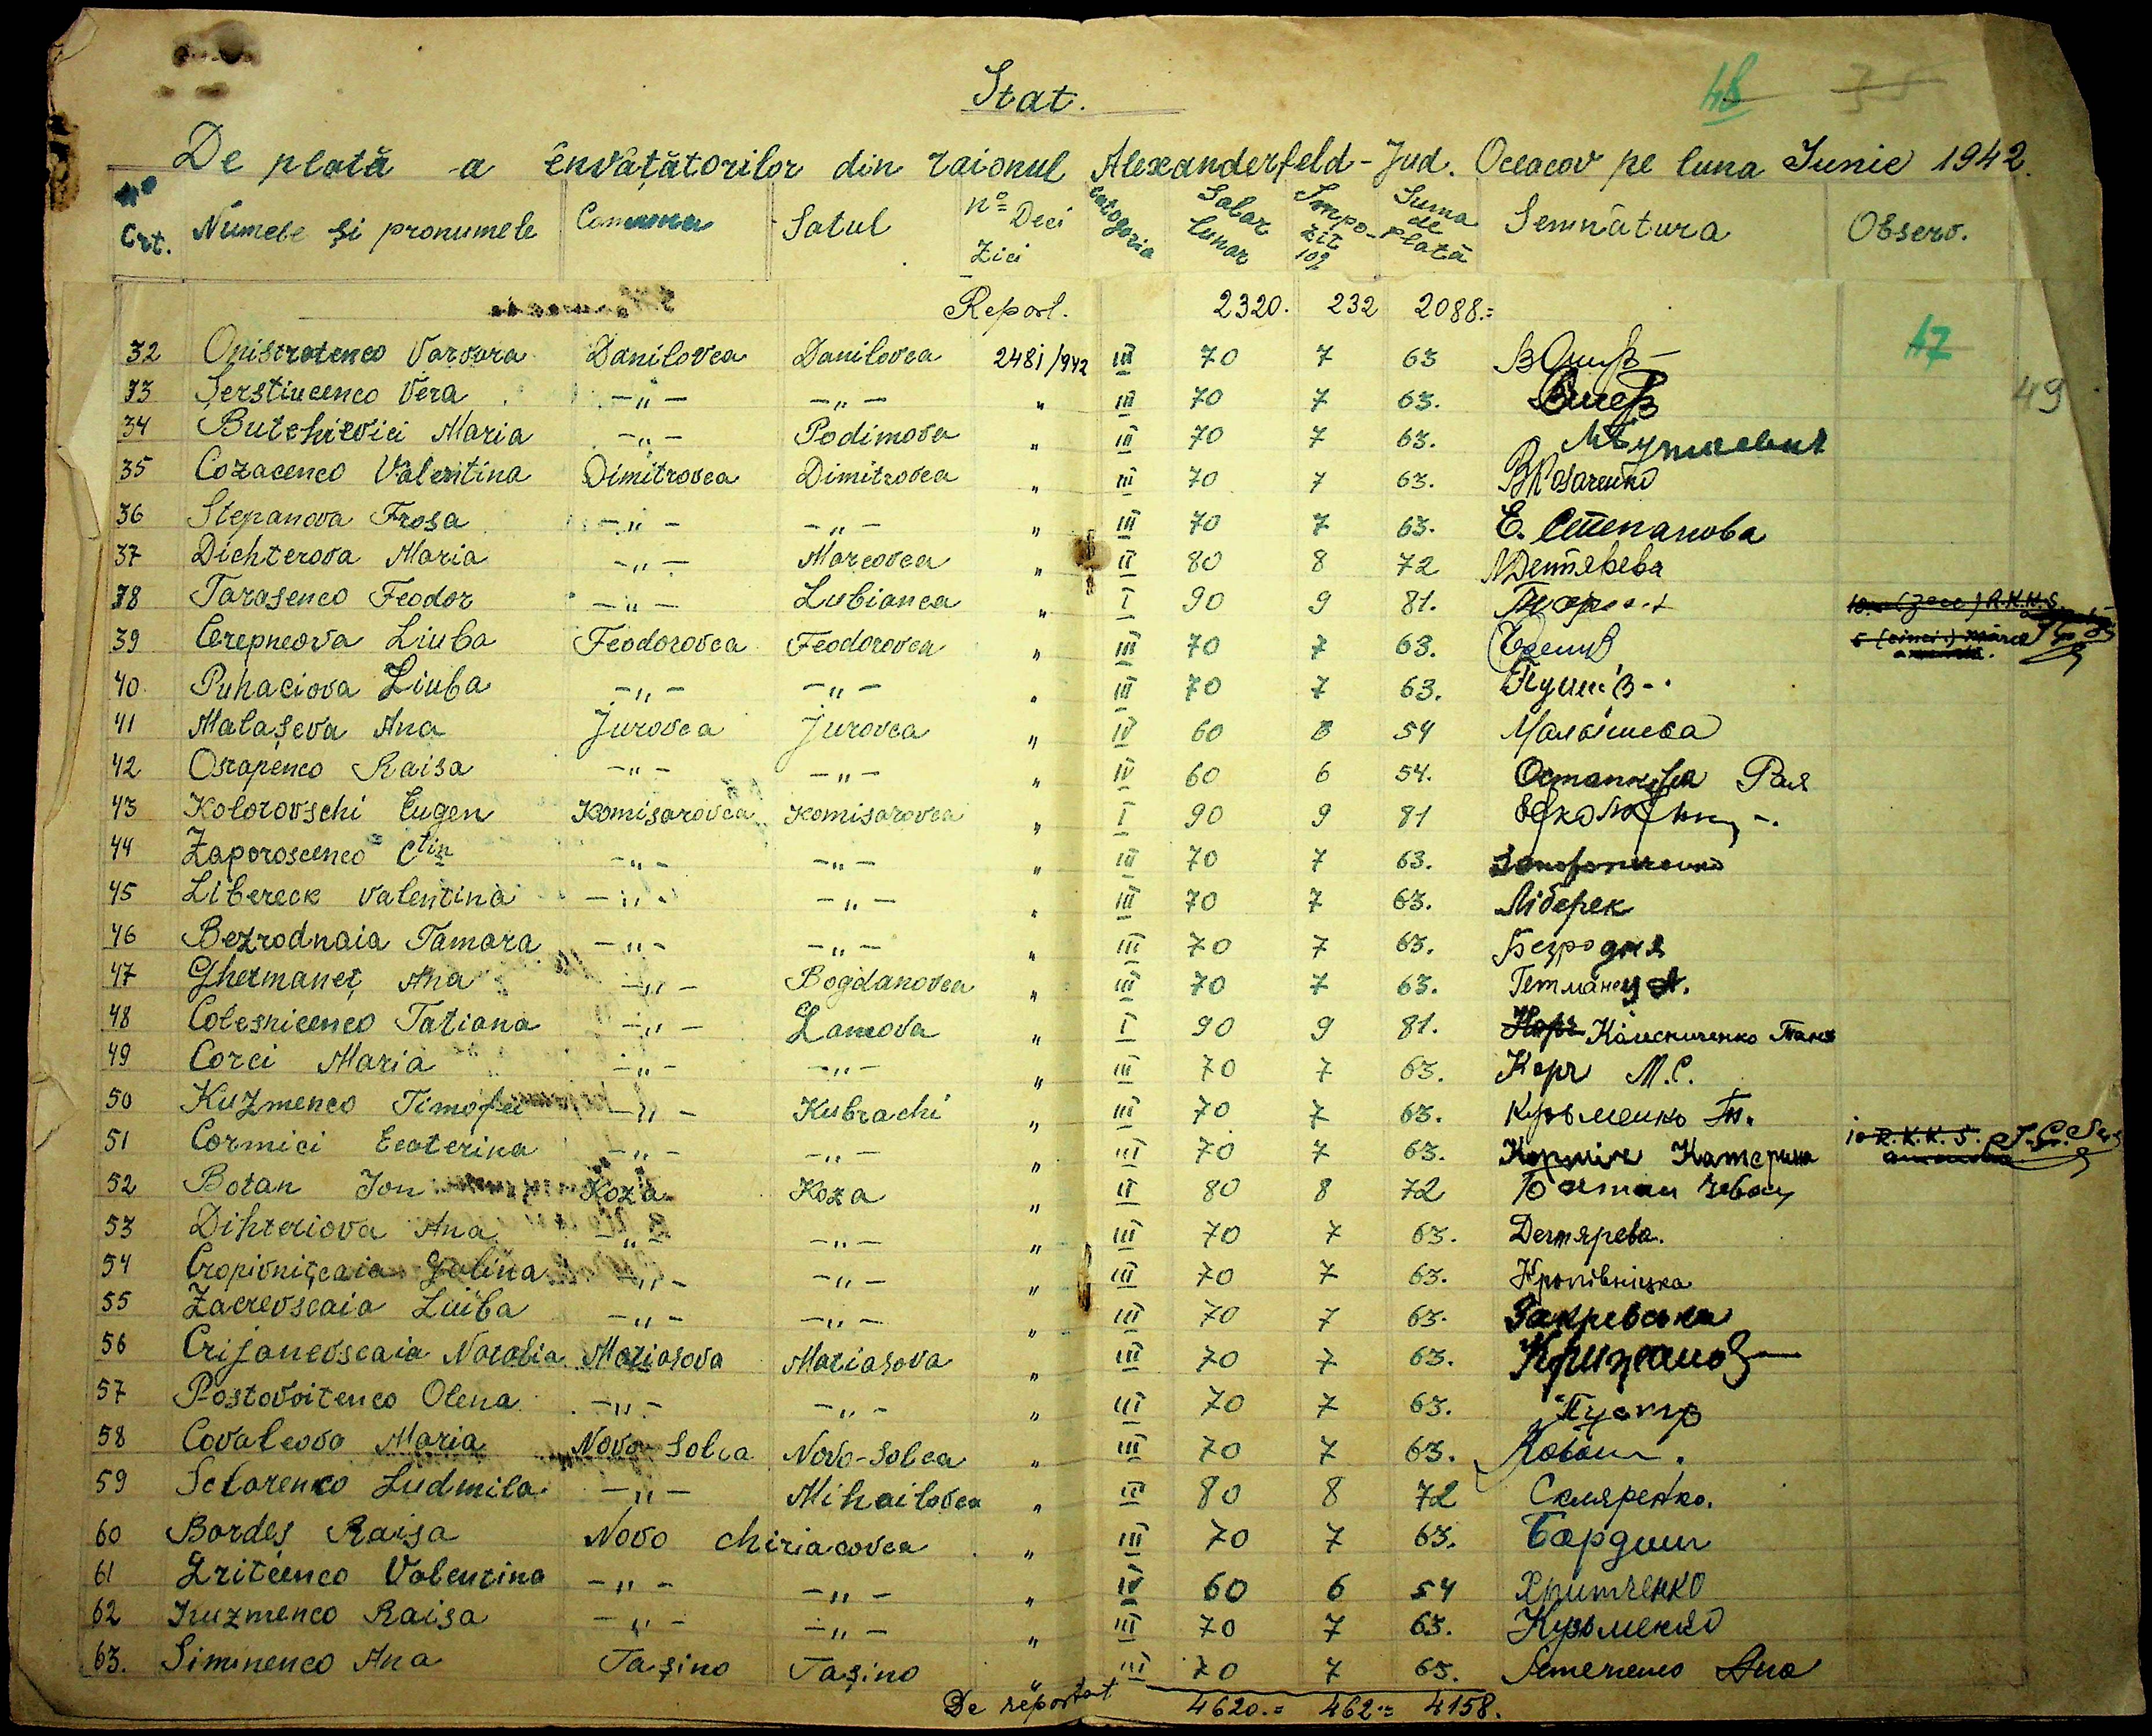 48 35
Stat.
De plată a învățătorilor din raionul Alexanderfeld - Jud. Oceacov pe luna Iunie 1942.
No Crt. Numele și pronumele Comuna Satul no Deci Zici Categoria Salar Lunar Impozit 10% Suma de plată Semnătura Observ.
Report. 2320. 232 2088.=
47
49
32 Onistratenco Varvara Danilovca Danilovca 2481/942 III 70 7 63
33 Șerstiucenco Vera -„- -„- „ III 70 7 63.
34 Butchievici Maria -„- Podimova „ III 70 7 63.
35 Cozacenco Valentina Dimitrovca Dimitrovca „ III 70 7 63.
36 Stepanova Frosa -„- -„- „ III 70 7 63. Е. Степанова
37 Dichterova Maria -„- Marcovca „ II 80 8 72
38 Tarasenco Feodor -„- Lubianca „ I 90 9 81.
39 Cerepneova Liuba Feodorovca Feodorovca „ III 70 7 63.
40. Puhaciova Liuba -„- -„- „ III 70 7 63.
41 Malașeva Ana Jurovca Jurovca „ IV 60 6 54 Малышева
42 Osrapenco Raisa -„- -„- „ IV 60 6 54. Рая
43 Kolorovschi Eugen Komisarovca Komisarovca „ I 90 9 81
44 Zaporoscenco Ctin -„- -„- „ III 70 7 63.
45 Libereck Valentina -„- -„- „ III 70 7 63. Ліберек
46 Bezrodnaia Tamara -„- -„- „ III 70 7 63. Безродня
47 Ghermaneț Ana -„- Bogdanovca „ III 70 7 63. Гетманец А.
48 Colesnicenco Tatiana -„- Lancova „ I 90 9 81. Колесниченко Таня
49 Corci Maria -„- -„- „ III 70 7 63. Корч М.С.
50 Kuzmenco Timofei -„- Kubrachi „ III 70 7 63. Кузьменко Тт.
51 Cormici Ecaterina -„- -„- „ III 70 7 63. Корміч Катерина
52 Botan Ion Koza Koza „ II 80 8 72
53 Dihteriova Ana -„- -„- „ III 70 7 63. Дегтярева.
54 Cropivnițcaia Galina -„- -„- „ III 70 7 63. Кропівніцка
55 Zacrevscaia Luiba -„- -„- „ III 70 7 63. Закревська
56 Crijanevscaia Natalia Mariasova Mariasova „ III 70 7 63.
57 Postovoitenco Olena -„- -„- „ III 70 7 63.
58 Covaleova Maria Novo-Solca Novo-Solca „ III 70 7 63.
59 Sclarenco Ludmila -„- Mihailovca „ II 80 8 72 Скляренко.
60 Bordeș Raisa Novo Chiriacovca „ III 70 7 63. Бардиш
61 Hritcenco Valentina -„- -„- „ IV 60 6 54 Хритченко
62 Kuzmenco Raisa -„- -„- „ III 70 7 63. Кузьменко
63. Siminenco Ana Tașino Tașino „ III 70 7 63.
De reportat 4620.= 462.= 4158.